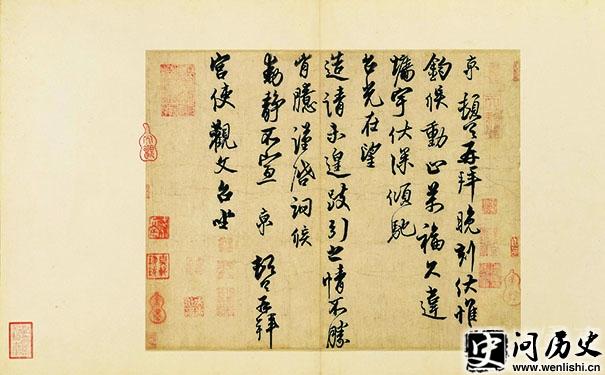 京 頓首再拜晚刻伏惟
鈞候動止萬福久違
牆宇伏深傾馳
台光在望
造請未遑跂引之情不勝
胷臆謹啓詢候
動靜不宣 京 頓首再拜
宮使觀文台坐
史 问历史
www.wenlishi.cn